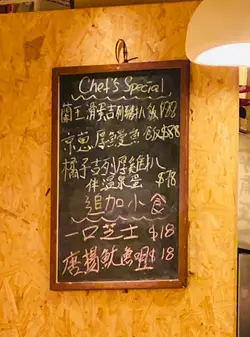 Chef's Special
蘭王滑蛋吉列豬扒飯$88
京蔥厚鰻魚飯$88
橘子吉列厚雞扒
伴溫泉蛋 $78
追加小食
一口芝士 $18
唐揚魷魚咀 $18